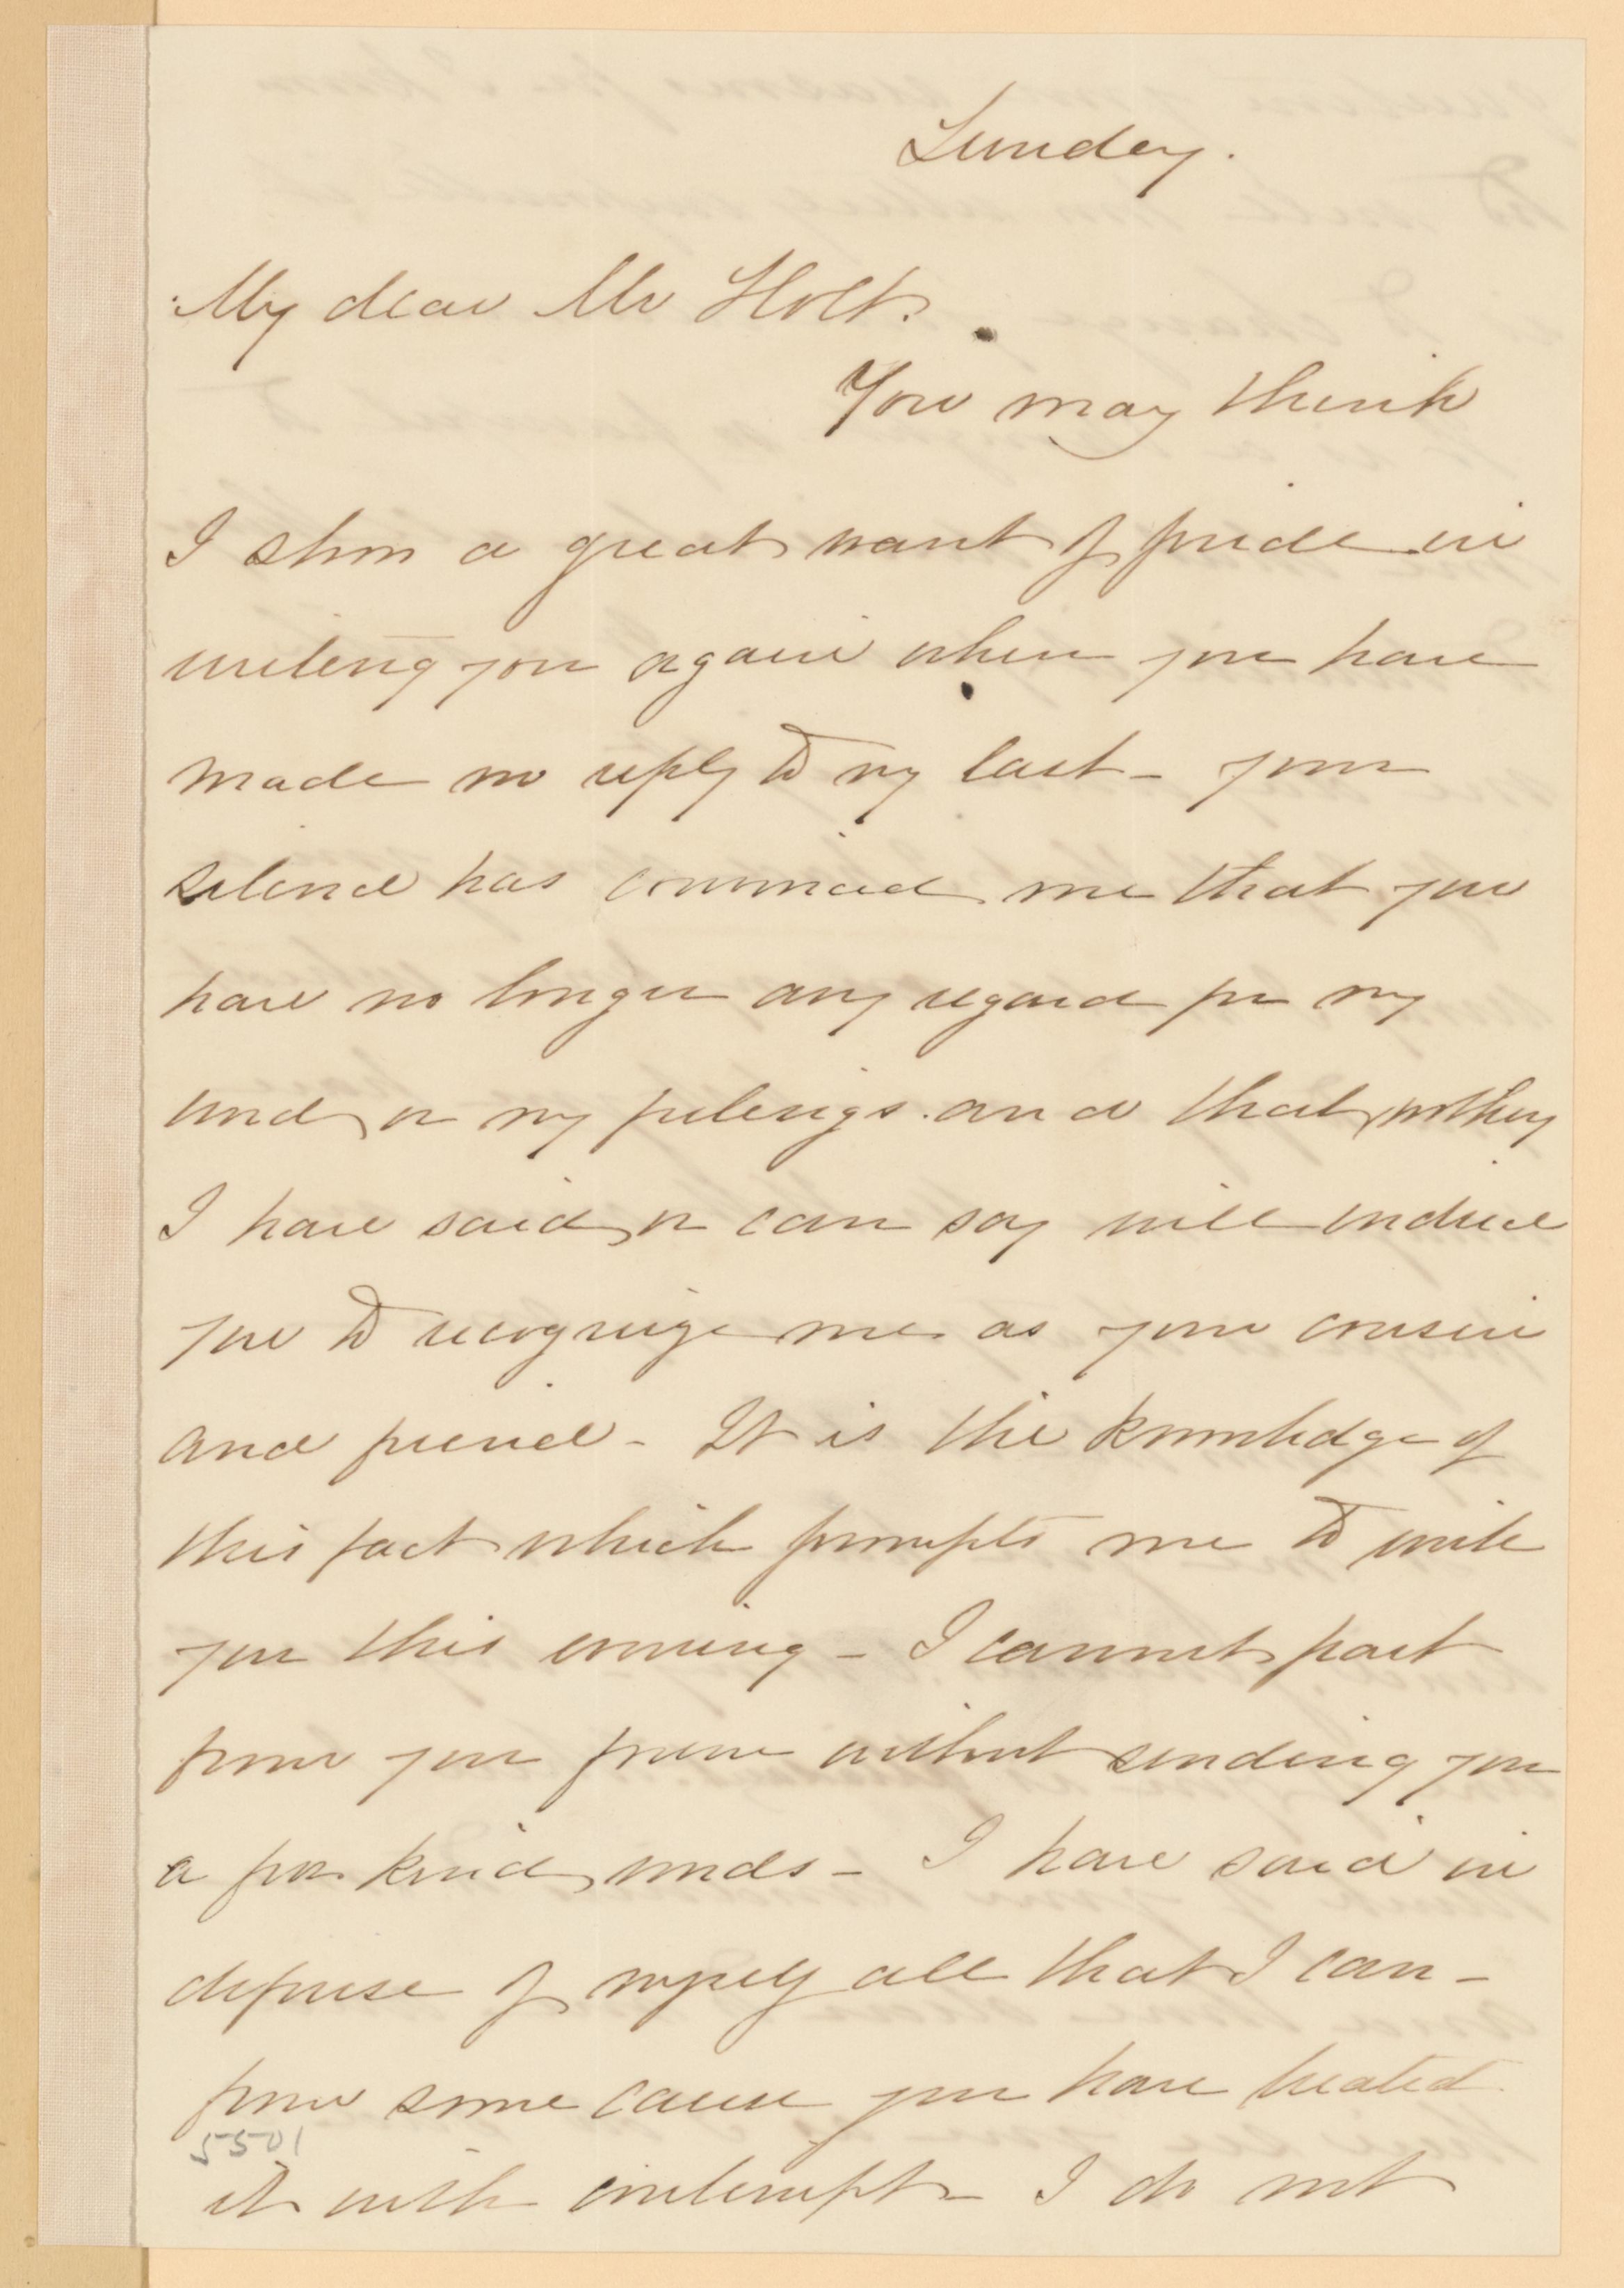 Sunday.
My dear Mr Holt.
You may think
I show a great want of pride in
writing you again when you have
made no reply to my last - your
silence has convinced me that you
have no longer any regard for my
word or my feelings. and that nothing
I have said or can say will induce
you to recognize me as your cousin
and friend - It is the knowledge of
this fact which prompts me to write
you this evening - I cannot part
from you forever without sending you
a few kind words - I have said in
defense of myself all that I can -
from some cause you have treated
it with contempt - I do not
5501